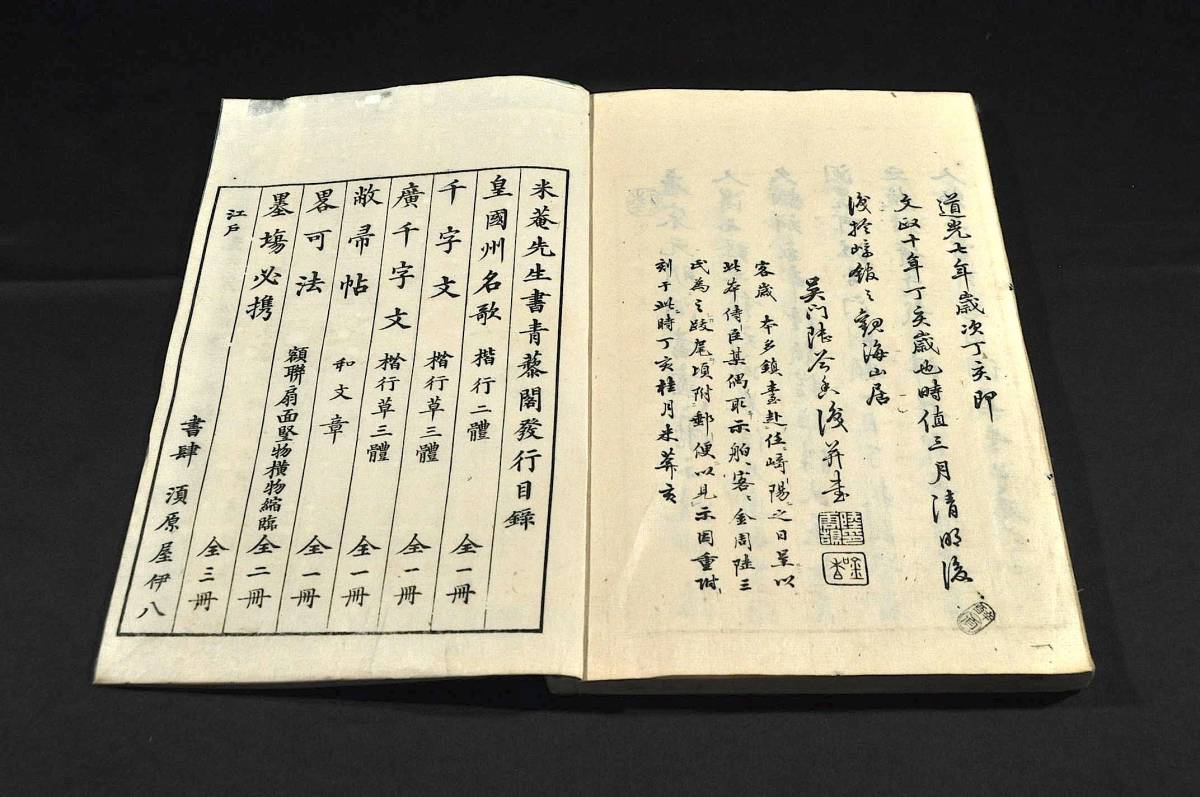 道光七年歲次丁亥即
文政十年丁亥歲也時值三月清明後
於崎館之觀海山居
吳門陸 并書
客歲 本多鎮臺赴任崎陽之日呈以
此本侍臣某偶取示舶客金周陸三
氏為之跋尾頃附郵便以見示因重附
刻于此時丁亥桂月米菴亥
米菴先生書青藜閣發行目錄
皇國州名歌 楷行二體 全一冊
千字文 楷行草三體 全一冊
廣千字文 楷行草三體 全一冊
敝帚帖 和文章 全一冊
畧可法 額聯扇面堅物橫物縮臨 全二冊
墨場必携 全三冊
江戶 書肆 須原屋伊八